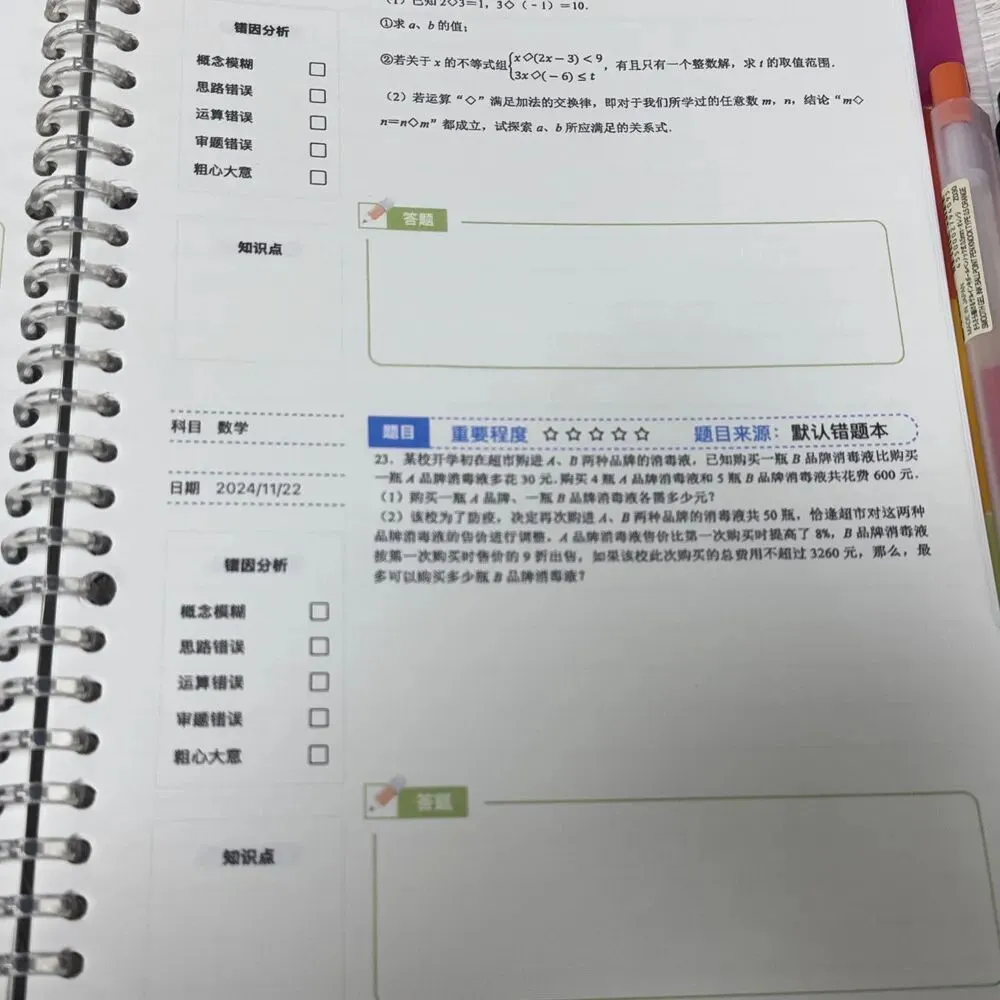 (1) 已知 2◇3=1, 3◇(-1)=10.
①求 a、b 的值;
②若关于 x 的不等式组{x◇(2x-3)<9
3x◇(-6)≤t, 有且只有一个整数解, 求 t 的取值范围.
(2) 若运算“◇”满足加法的交换律, 即对于我们所学过的任意数 m, n, 结论“m◇
n=n◇m”都成立, 试探索 a、b 所应满足的关系式.
错因分析
概念模糊
思路错误
运算错误
审题错误
粗心大意
答题
知识点
科目 数学
日期 2024/11/22
题目 重要程度 ☆☆☆☆☆ 题目来源: 默认错题本
23. 某校开学初在超市购进 A、B 两种品牌的消毒液, 已知购买一瓶 B 品牌消毒液比购买
一瓶 A 品牌消毒液多花 30 元. 购买 4 瓶 A 品牌消毒液和 5 瓶 B 品牌消毒液共花费 600 元.
(1) 购买一瓶 A 品牌、一瓶 B 品牌消毒液各需多少元?
(2) 该校为了防疫, 决定再次购进 A、B 两种品牌的消毒液共 50 瓶, 恰逢超市对这两种
品牌消毒液的售价进行调整, A 品牌消毒液售价比第一次购买时提高了 8%, B 品牌消毒液
按第一次购买时售价的 9 折出售, 如果该校此次购买的总费用不超过 3260 元, 那么, 最
多可以购买多少瓶 B 品牌消毒液?
错因分析
概念模糊
思路错误
运算错误
审题错误
粗心大意
答题
知识点